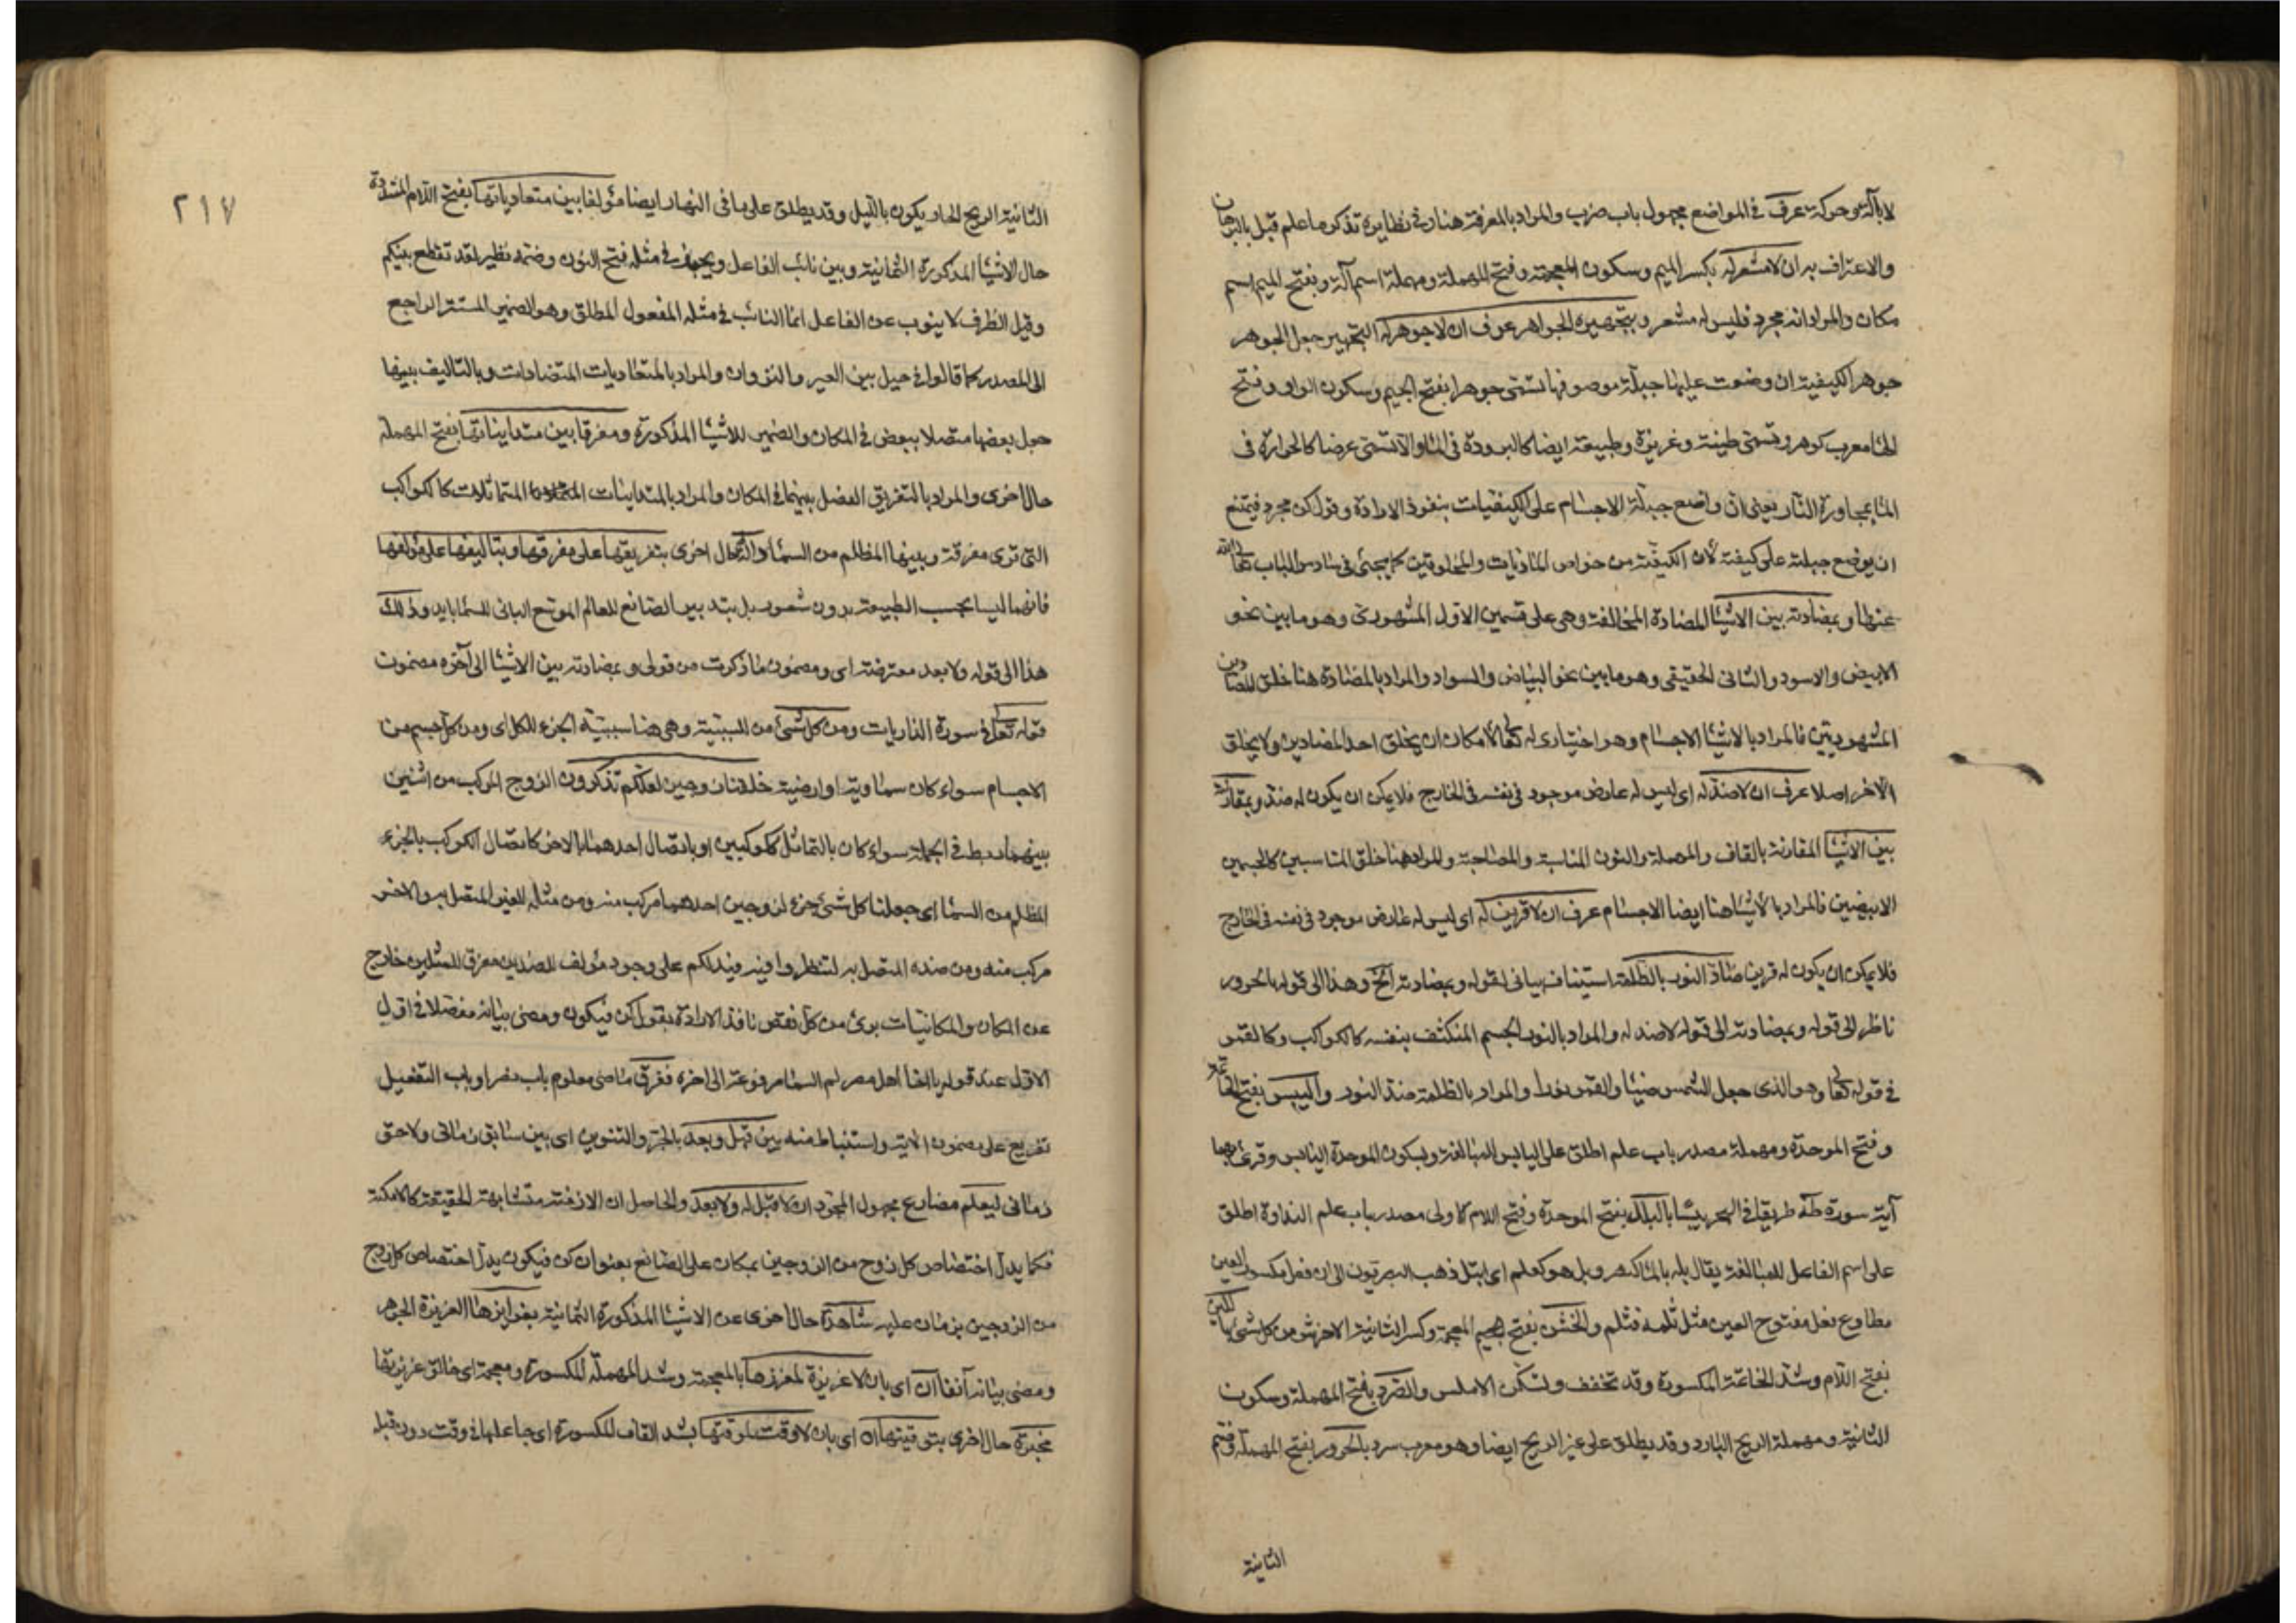 لا بآلة وحركة عرف في المواضع مجهول باب ضرب والمراد بالمعرفة هنا وفي نظايره تذكر ما علم قبل بالبرهان
والاعتراف به ان لا مشعر له بكسر الميم وسكون المعجمة وفتح المهملة ومهملة اسم آلة وبفتح الميم اسم
مكان والمراد انه مجرد فليس له مشعر وبتجهيره الجواهر عرف ان لا جوهر له التجهير جعل الجوهر
جوهرا الكيفية ان وضعت عليها جبلة موصوفها تسمى جوهرا بفتح الجيم وسكون الواو وفتح
الهاء معرب كوهر وتسمى طينة وغريزة وطبيعة ايضا كالبرودة في الماء والا تسمى عرضا كالحرارة في
الماء بمجاورة النار يعني ان واضع جبلة الاجسام على الكيفيات بنفوذ الارادة وقول كن مجرد فيمتنع
ان يوضع جبلته على كيفية لأن الكيفية من خواص الماديات والمخلوقين كما يجيء في سادس الباب
وبمضادته بين الاشياء المضادة المخالفة وهي على قسمين الاول المشهوري وهو ما بين نحو
الابيض والاسود والثاني الحقيقي وهو ما بين نحو البياض والسواد والمراد بالمضادة هنا خلق الضدين
المشهوريين فالمراد بالاشياء الاجسام وهو اختياري له تعالى لامكان ان يخلق احد المضادين ولا يخلق
الآخر اصلا عرف ان لا ضد له اي ليس له عارض موجود في نفسه في الخارج فلا يمكن ان يكون له ضد وبمقارنته
بين الاشياء المقارنة بالقاف والمهملة والنون المناسبة والمصاحبة والمراد هنا خلق المتناسبين كالجسمين
الابيضين فالمراد بالاشياء هنا ايضا الاجسام عرف ان لا قرين له اي ليس له عارض موجود في نفسه في الخارج
فلا يمكن ان يكون له قرين ضاد النور بالظلمة استيناف بياني لقوله وبمضادته الخ وهذا الى قوله بالحرور
ناظر الى قوله وبمضادته الى قوله لا ضد له والمراد بالنور الجسم المنكشف بنفسه كالكواكب وكالقمر
في قوله تعالى وهو الذي جعل الشمس ضياء والقمر نورا والمراد بالظلمة ضد النور واليبس بفتح الخاتمة
وفتح الموحدة ومهملة مصدر باب علم اطلق على اليابس للمبالغة وبسكون الموحدة اليابس وقرئ بهما
آية سورة طه طريقا في البحر يبسا بالبلل بفتح الموحدة وفتح اللام الاولى مصدر باب علم النداوة اطلق
على اسم الفاعل للمبالغة يقال بله بالماء كنصر وبل هو كعلم اي ابتل ذهب البصريون الى ان فعل مكسور العين
مطاوع فعل مفتوح العين مثل ثلمه فثلم والخشن بفتح المعجمة وكسر الثانية الاخرش من كل شيء باللين
بفتح اللام وشد الخاتمة المكسورة وقد تخفف وتسكن الاملس والصرد بفتح المهملة وسكون
الثانية ومهملة الريح البارد وقد يطلق على غير الريح ايضا وهو معرب سرد بالحرور بفتح المهملة وضم
الثانية
٢١٧
الثانية الريح الحار يكون بالليل وقد يطلق على ما في النهار ايضا مؤلفا بين متعادياتها بفتح اللام المشددة
حال الاشياء المذكورة الثمانية وبين نائب الفاعل ويجوز في مثله فتح النون وضمه نظير لقد تقطع بينكم
وقيل الظرف لا ينوب عن الفاعل انما النائب في مثله المفعول المطلق وهو الضمير المستتر الراجع
الى المصدر كما قالوا في حيل بين العير والنزوان والمراد بالمتعاديات المتضادات وبالتأليف بينها
جعل بعضها متصلا ببعض في المكان والضمير للاشياء المذكورة ومفرقا بين متدانياتها بفتح المهملة
حال اخرى والمراد بالتفريق الفصل بينهما في المكان والمراد بالمتدانيات المتماثلات كالكواكب
التي ترى مفرقة وبينها المظلم من السماء والتحال اخرى بتفريقها على مفرقها وبتأليفها على مؤلفها
فانهما ليسا بحسب الطبيعة بدون شعور بل بتدبير الصانع للعالم الموسع الباني للسماء بايد وذلك
هذا الى قوله ولا بعد معترضة اي ومضمون ما ذكرت من قولي وبمضادته بين الاشياء الى آخره مضمون
قوله تعالى في سورة الذاريات ومن كل شيء من للسببية وهي هنا سببية الجزء للكل اي ومن كل جسم من
الاجسام سواء كان سماوية او ارضية خلقنا زوجين لعلكم تذكرون الزوج المركب من اثنين
بينهما ربط في الجملة سواء كان بالتماثل ككوكبين او باتصال احدهما بالاخر كاتصال الكوكب بالجزء
المظلم من السماء اي جعلنا كل شيء جزء لزوجين احدهما مركب منه ومن مثله الغير المتصل به والاخر
مركب منه ومن ضده المتصل به لتنظروا فيه فيدلكم على وجود مؤلف للضدين مفرق للمثلين خارج
عن المكان والمكانيات برئ من كل نقص نافذ الارادة بقول كن فيكون ومضى بيانه مفصلا في اول
الاول عند قوله يا اخا اهل مصر لم السماء مرفوعة الى اخره ففرق ماضي معلوم باب نصر او باب التفعيل
تفريع على مضمون الآية واستنباط منه بين قبل وبعد بالجر والتنوين اي بين سابق زماني ولاحق
زماني ليعلم مضارع مجهول المجرد ان لا قبل له ولا بعد والحاصل ان الازمنة متشابهة الحقيقة كالامكنة
فكما يدل اختصاص كل زوج من الزوجين بمكان على الصانع بعنوان كن فيكون يدل اختصاص كل زوج
من الزوجين بزمان عليه شاهدة حال اخرى عن الاشياء المذكورة الثمانية بغرايزها الغريزة الجوهر
ومضى بيانه آنفا ان اي بان لا غريزة لمغرزها بالمعجمة وشد المهملة المكسورة ومعجمة اي خالق غريزتها
مخبرة حال اخرى بتوقيتها ان اي بان لا وقت لموقتها بشد القاف المكسورة اي جاعلها في وقت دون قبله